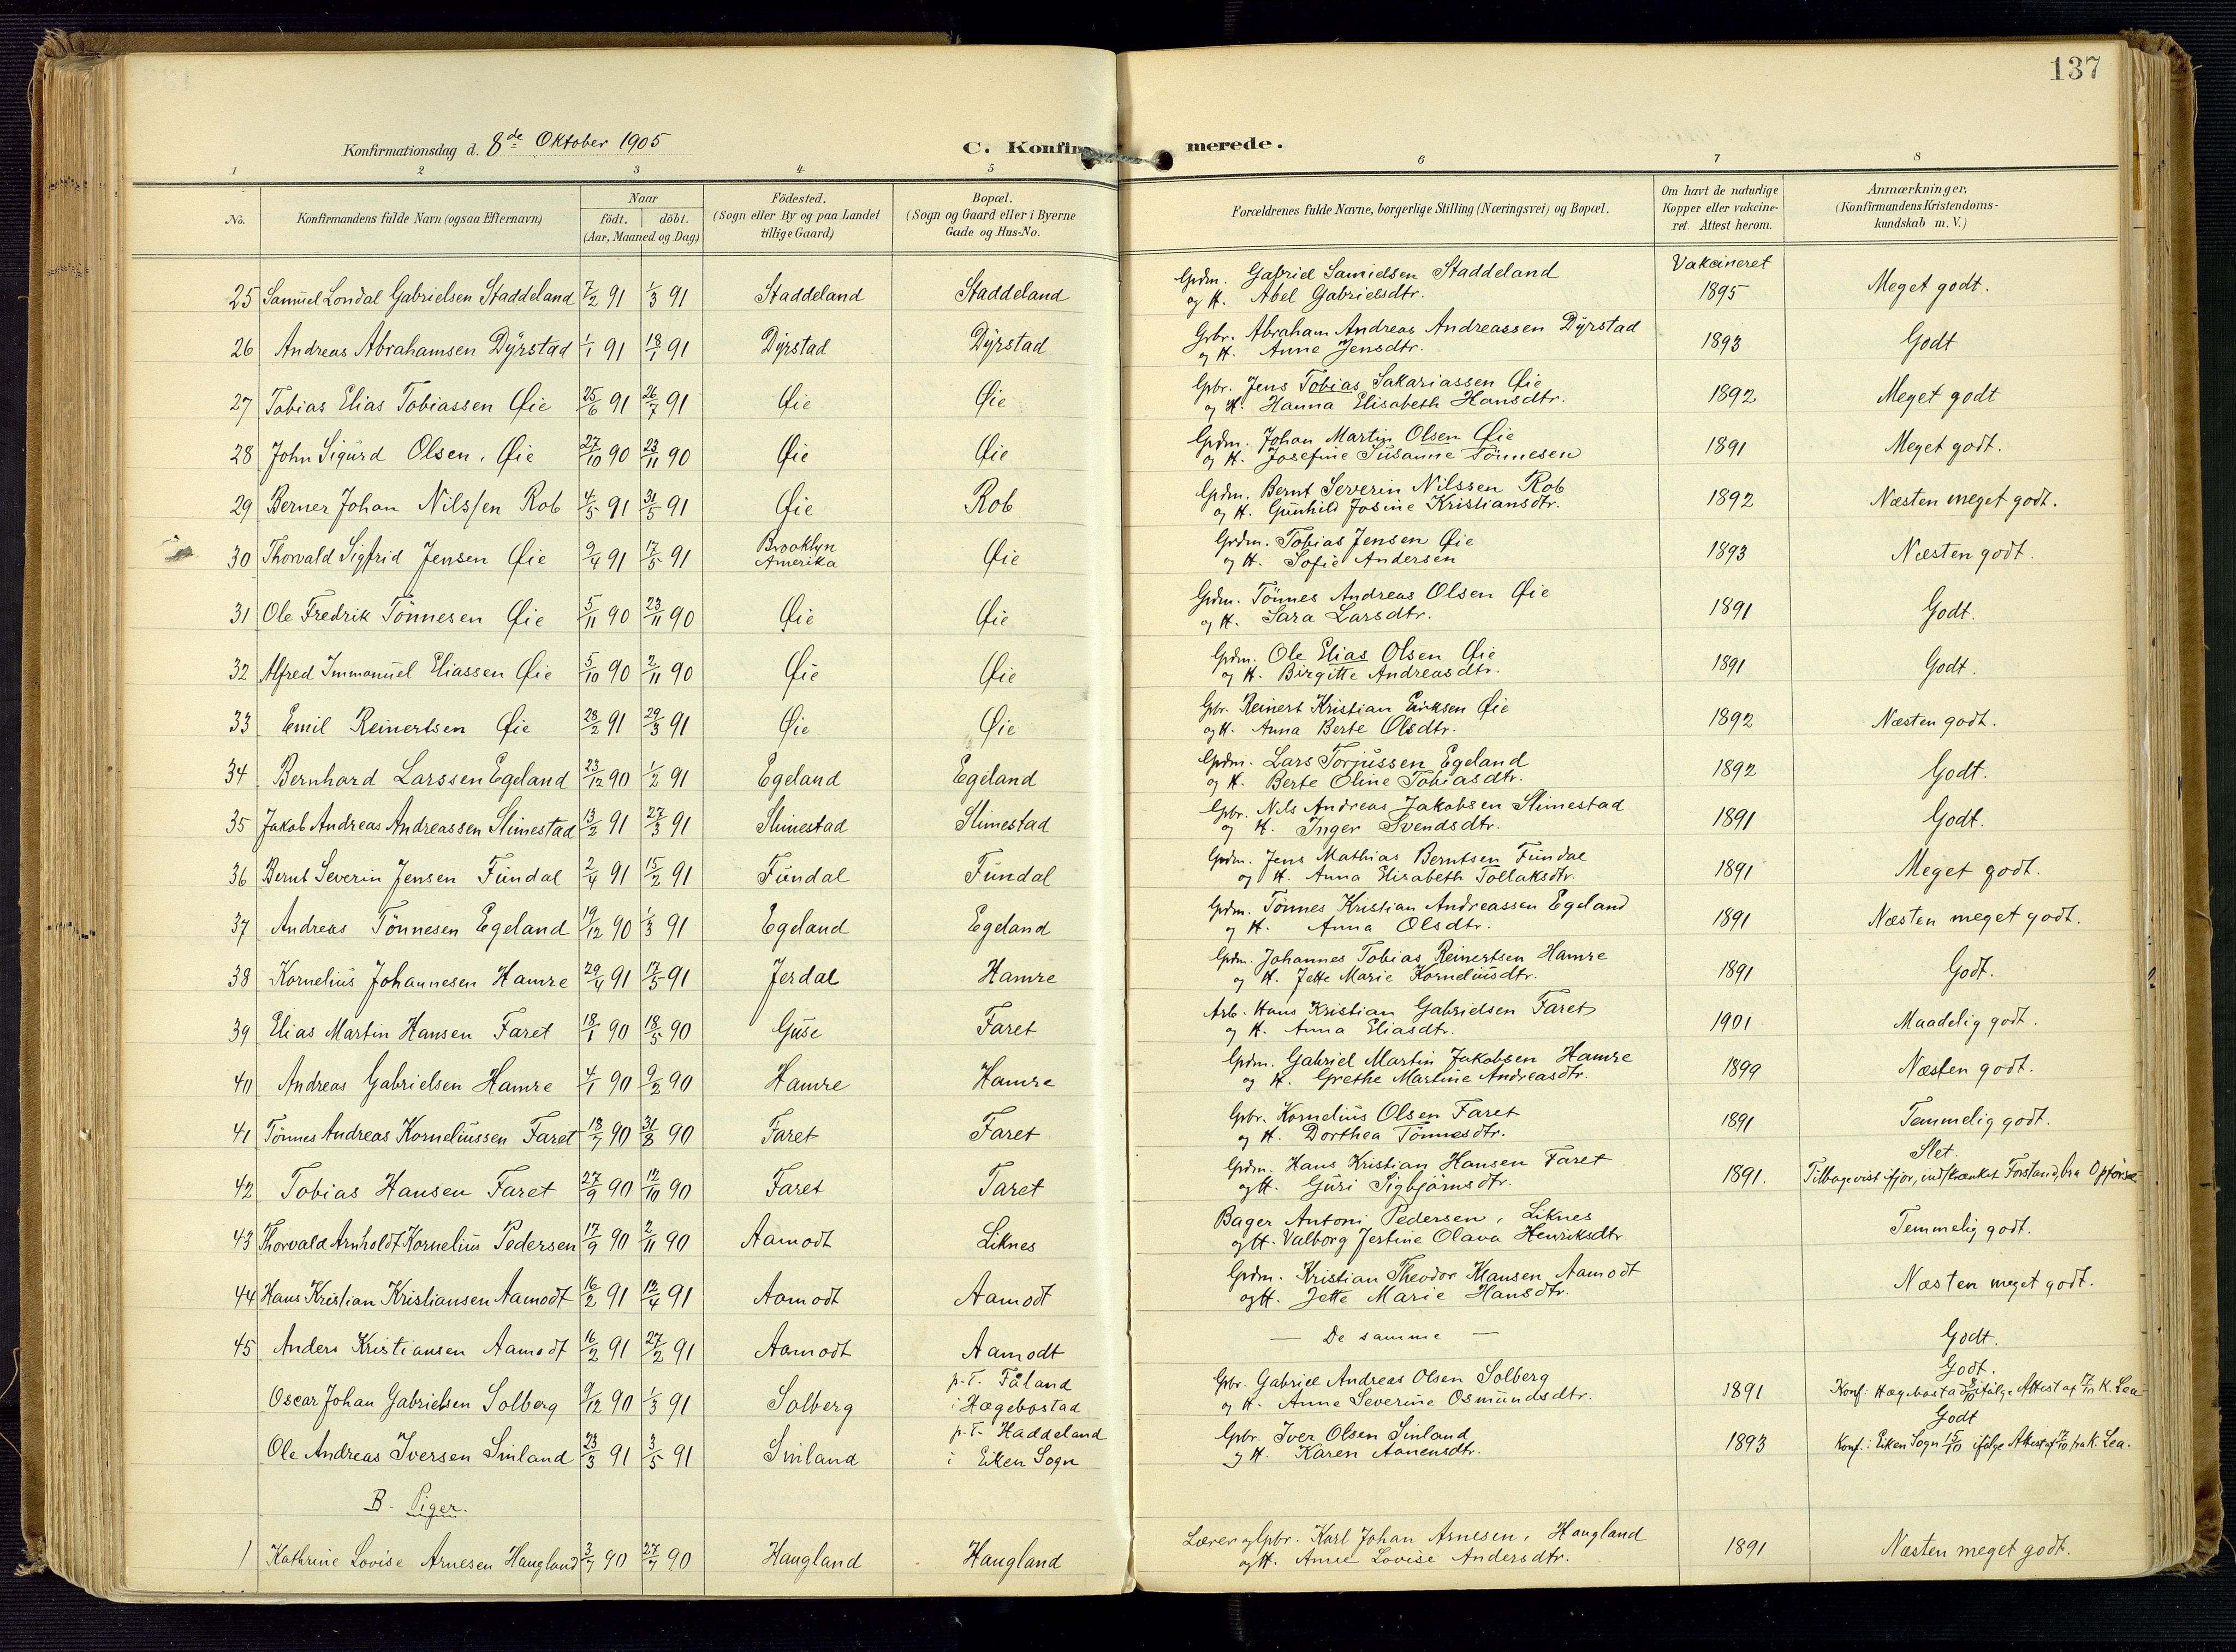 137
Konfirmationsdag d. 8de Oktober 1905
C. Konfirmerede.
1 2 3 4 5 6 7 8
No. Konfirmandens fulde Navn (ogsaa Efternavn) Naar født. døbt. (Aar, Maaned og Dag) Fødested. (Sogn eller By og paa Landet tillige Gaard) Bopæl. (Sogn og Gaard eller i Byerne Gade og Hus-No. Forældrenes fulde Navne, borgerlige Stilling (Næringsvei) og Bopæl. Om havt de naturlige Kopper eller vakcineret. Attest herom. Anmærkninger. (Konfirmandens Kristendomskundskab m. V.)
Gdm. Gabriel Samuelsen Staddeland Vakcineret
25 Samuel Londal Gabrielsen Staddeland 7/2 91 1/3 91 Staddeland Staddeland og H. Abel Gabrielsdtr. 1895 Meget godt.
Gbr. Abraham Andreas Andreassen Dÿrstad
26 Andreas Abrahamsen Dÿrstad 1/1 91 18/1 91 Dÿrstad Dÿrstad og H. Anne Jensdtr. 1893 Godt
Gbr. Jens Tobias Sakariassen Øie
27 Tobias Elias Tobiassen Øie 25/6 91 26/7 91 Øie Øie og H. Hanna Elisabeth Hansdtr. 1892 Meget godt
Gdm. Johan Martin Olsen Øie
28 John Sigurd Olsen. Øie 27/10 90 23/11 90 Øie Øie og H. Josefine Susanne Tönnesen 1891 Meget godt.
Gdm. Bernt Severin Nilssen Rob
29 Berner Johan Nilssen Rob 4/5 91 31/5 91 Øie Rob og H. Gunhild Josine Kristiansdtr. 1892 Næsten meget godt.
Gdm. Tobias Jensen Øie
30 Thorvald Sigfrid Jensen Øie 9/4 91 17/5 91 Brooklyn Amerika Øie og H. Sofie Andersen 1893 Næsten godt.
Gdm. Tönnes Andreas Olsen Øie
31 Ole Fredrik Tönnesen Øie 5/11 90 23/11 90 Øie Øie og H. Sara Larsdtr. 1891 Godt.
Gdm. Ole Elias Olsen Øie
32 Alfred Immanuel Eliassen Øie 5/10 90 2/11 90 Øie Øie og H. Birgitte Andreasdtr. 1891 Godt.
Gbr. Reinert Kristian Eriksen Øie
33 Emil Reinertsen Øie 28/2 91 29/3 91 Øie Øie og H. Anna Berte Olsdtr. 1892 Næsten godt.
Gdm. Lars Torjussen Egeland
34 Bernhard Larssen Egeland 23/12 90 1/2 91 Egeland Egeland og H. Berte Oline Tobiasdtr. 1892 Godt.
Gbr. Nils Andreas Jakobsen Slimestad
35 Jakob Andreas Andreassen Slimestad 13/2 91 27/3 91 Slimestad Slimestad og H. Inger Svendsdtr. 1891 Godt.
Gdm. Jens Mathias Berntsen Fundal
36 Bernt Severin Jensen Fundal 2/4 91 15/2 91 Fundal Fundal og H. Anna Elisabeth Tollaksdtr. 1891 Meget godt.
Gdm. Tönnes Kristian Andreassen Egeland
37 Andreas Tönnesen Egeland 19/12 90 1/3 91 Egeland Egeland og H. Anna Olsdtr. 1891 Næsten meget godt.
Gdm. Johannes Tobias Reinertsen Hamre
38 Kornelius Johannesen Hamre 29/4 91 17/5 91 Jerdal Hamre og H. Jette Marie Korneliusdtr. 1891 Godt.
Arb. Hans Kristian Gabrielsen Faret
39 Elias Martin Hansen Faret 18/1 90 18/5 90 Guse Faret og H. Anna Eliasdtr. 1901 Maadelig godt.
Gdm. Gabriel Martin Jakobsen Hamre
40 Andreas Gabrielsen Hamre 4/1 90 9/2 90 Hamre Hamre og H. Grethe Martine Andreasdtr. 1899 Næsten godt.
Gbr. Kornelius Olsen Faret
41 Tönnes Andreas Korneliussen Faret 18/7 90 31/8 90 Faret Faret og H. Dorthea Tönnesdtr. 1891 Temmelig godt.
Gdm. Hans Kristian Hansen Faret Slet.
42 Tobias Hansen Faret 27/9 90 12/10 90 Faret Faret og H. Guri Sigbjörnsdtr. 1891. Tilbagevist ifjor, indskrænket Forstand, bra Opförse
Bager Antoni Pedersen, Liknes
43 Thorvald Arnholdt Kornelius Pedersen 17/9 90 2/11 90 Aamodt Liknes og H. Valborg Jestine Olava Henriksdtr. Temmelig godt.
Gdm. Kristian Theodor Klausen Aamodt
44 Hans Kristian Kristiansen Aamodt 16/2 91 12/4 91 Aamodt Aamodt og H. Jette Marie Hansdtr. Næsten meget godt.
45 Anders Kristiansen Aamodt 16/2 91 27/2 91 Aamodt Aamodt — De samme — Godt.
p.T. Tåland Gbr. Gabriel Andreas Olsen Solberg Godt.
Oscar Johan Gabrielsen Solberg 9/12 90 1/3 91 Solberg i Hægebostad og H. Anne Severine Osmundsdtr. 1891 Konf: Hægebostad 8/10 ifølge Attest af 17/11 K. Lea
p.T. Haddeland Gbr. Iver Olsen Sinland Godt
Ole Andreas Iversen Sinland 23/3 91 3/5 91 Sinland i Eiken Sogn og H. Karen Aanensdtr. 1893 Konf: Eiken Sogn 15/10 ifølge Attest af 17/10 fra K. Lea.
B. Piger.
Lærer og Gbr. Karl Johan Arnesen, Haugland
1 Kathrine Lovise Arnesen Haugland 3/7 90 27/7 90 Haugland Haugland og H. Anne Lovise Andersdtr. 1891 Næsten meget godt.